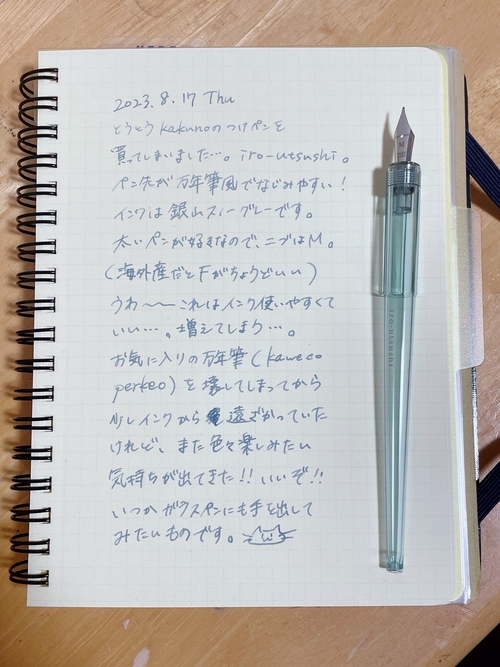 2023. 8. 17 Thu
とうとう kakunoのつけペンを
買ってしまいました…。iro-utsushi。
ペン先が万年筆風でなじみやすい!
インクは銀山スノーグレーです。
太いペンが好きなので、ニブはM。
(海外産だとFがちょうどいい)
うわ〜〜これはインク使いやすくて
いい…。増えてしまう…。
お気に入りの万年筆(kaweco
perkeo)を壊してしまってから
少しインクから遠ざかっていた
けれど、また色々楽しみたい
気持ちが出てきた!!いいぞ!!
いつかガラスペンにも手を出して
みたいものです。
iro-utsushi
M